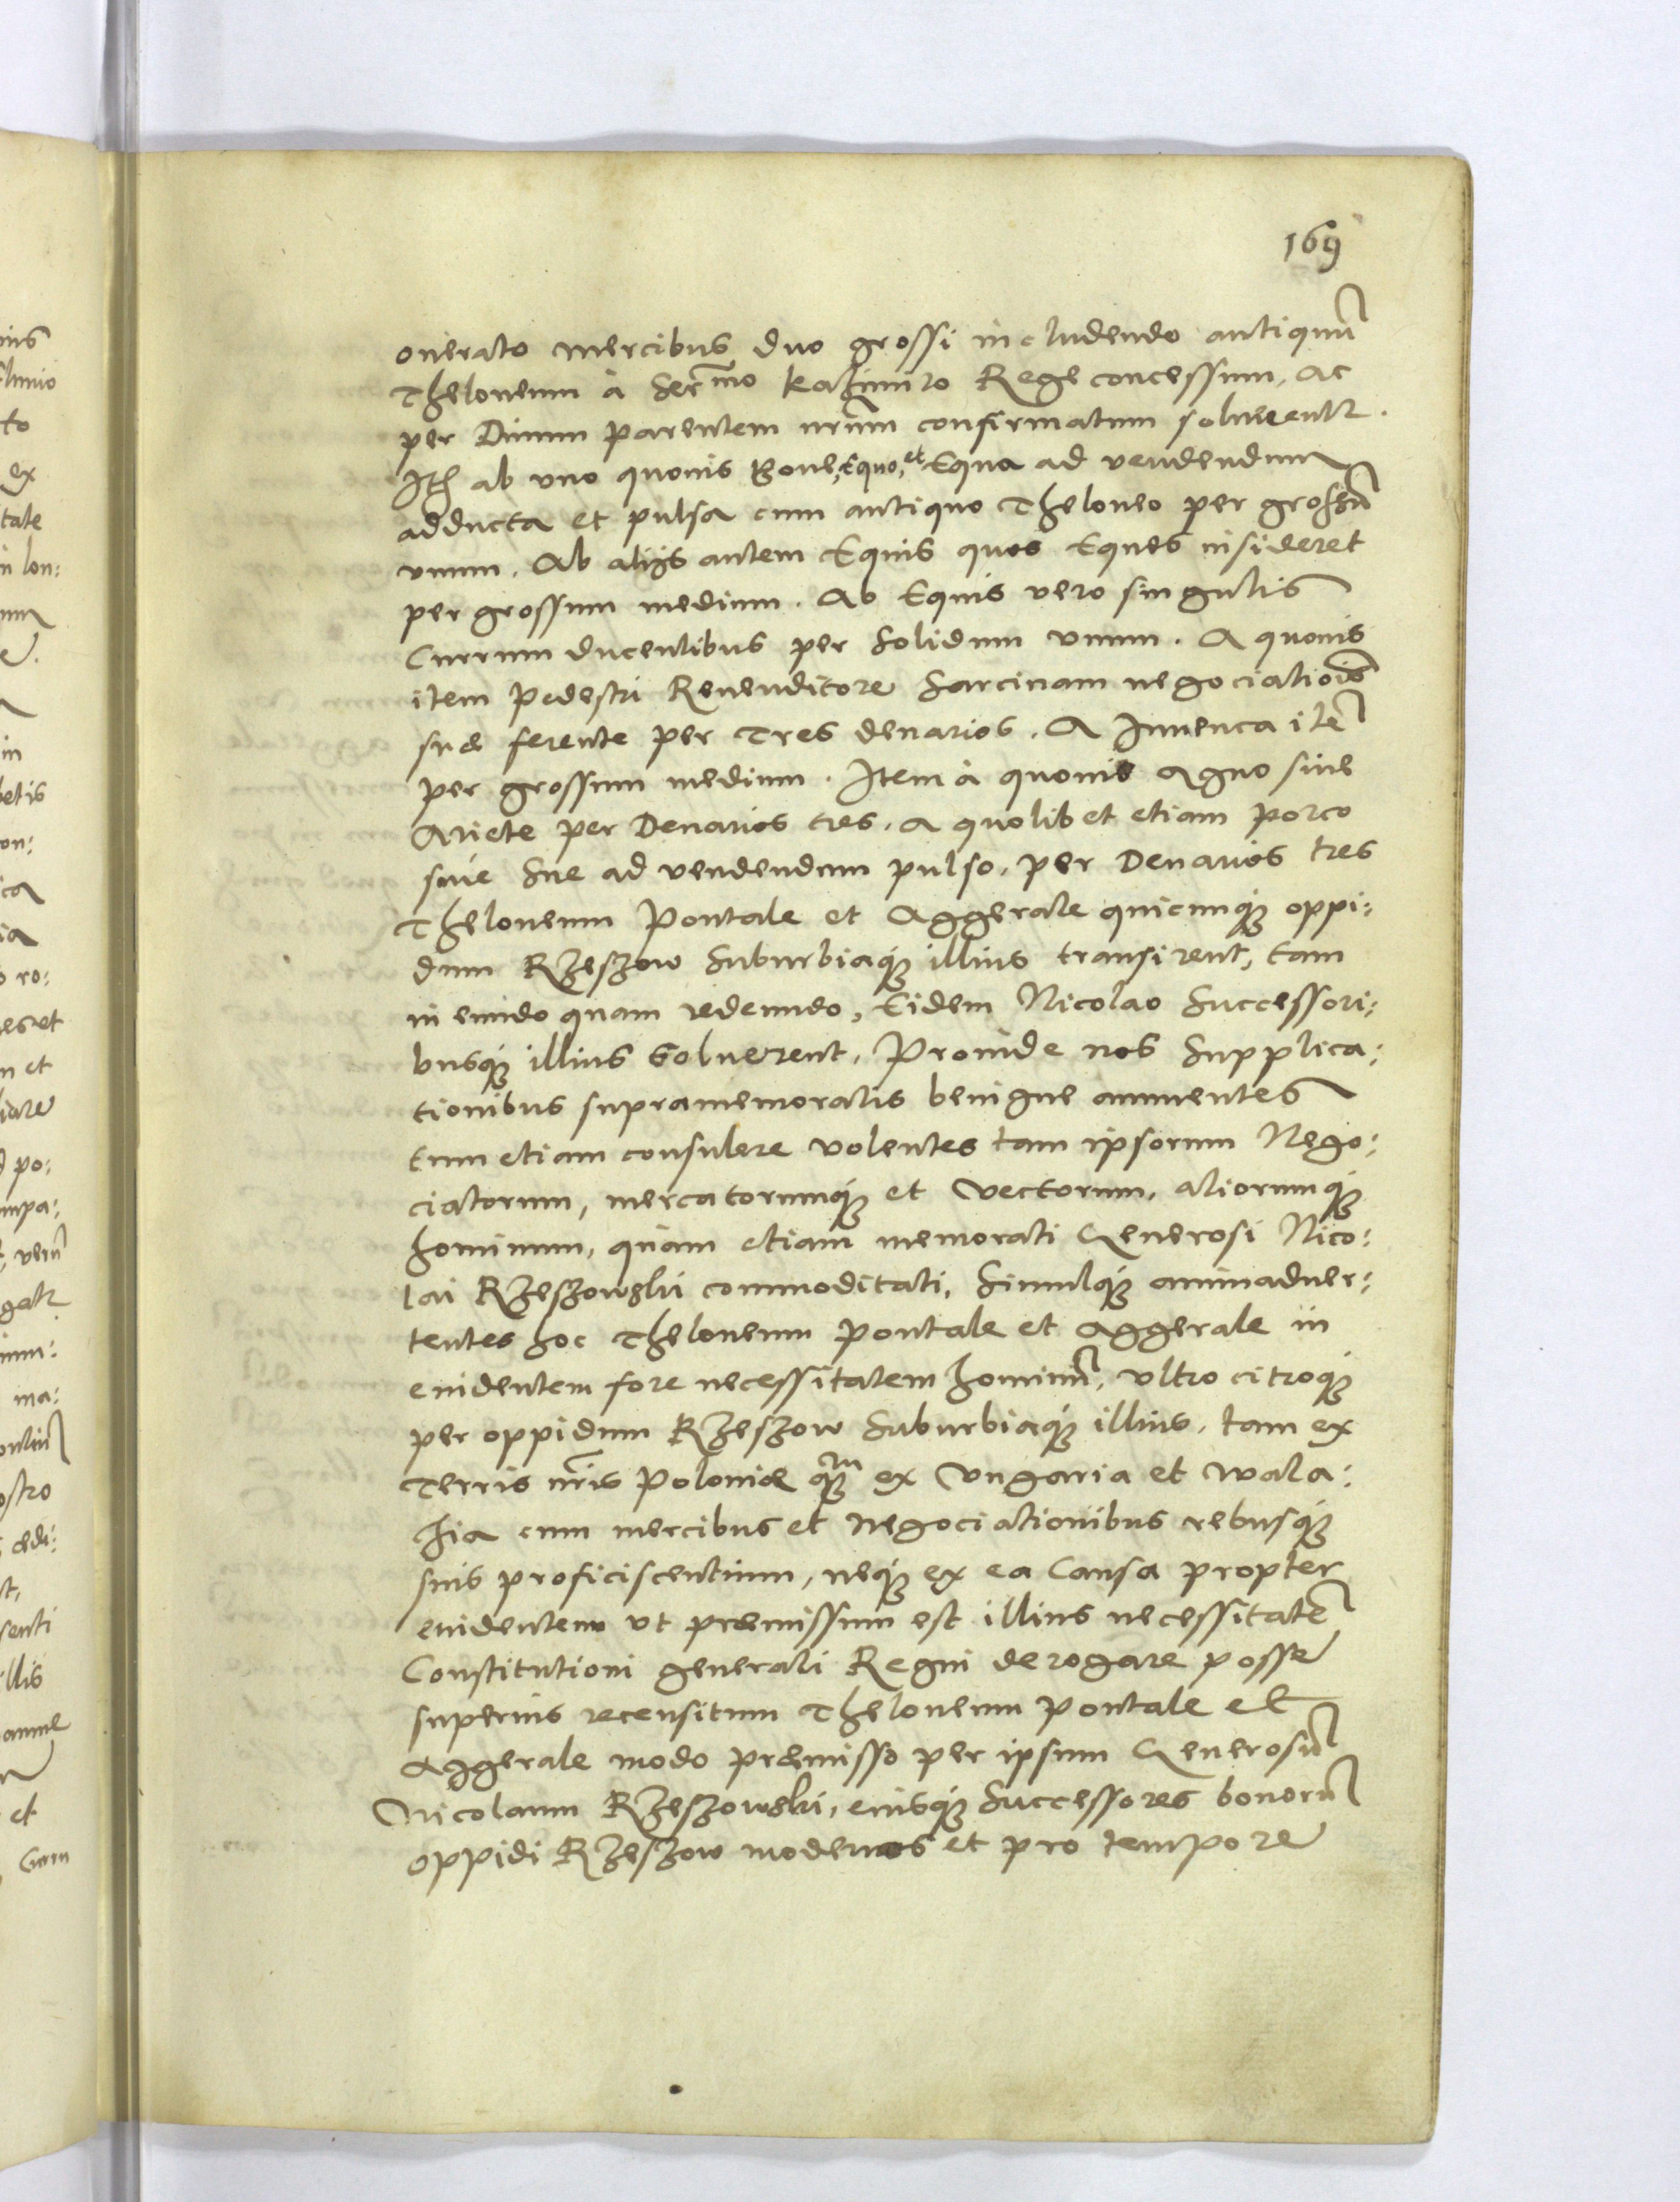 169
onerato mercibus duo grossi includendo antiquũ
Theloneum à Serᵐᵒ Kazimiro Rege concessum, ac
per Diuum parentem nr̃um confirmatum soluerentr.
Itẽ ab vno quouis Boue, Equo, et Equa ad vendendum
adducta et pulsa cum antiquo Theloneo per grossũ
vnum. Ab alijs autem Equis quos Eques insideret
per grossum medium. Ab Equis vero singulis
Currum ducentibus per Solidum vnum. A quouis
item pedestri Reuenditore Sarcinam negociatiõis
suæ ferente per Tres denarios. A Iuuenca itẽ
per grossum medium. Item à quouis Agno siue
Ariete per Denarios tres. A quolibet etiam porco
siue Sue ad vendendum pulso, per Denarios tres
Theloneum Pontale et Aggerale quicunq; oppi:
dum Rzeszow Suburbiaq; illius transirent, tam
in eundo quam redeundo, Eidem Nicolao Successori:
busq; illius Soluerent. Proinde nos Supplica:
tionibus supramemoratis benigne annuentes
tum etiam consulere volentes tam ipsorum Nego:
ciatorum, mercatorumq; et Vectorum, aliorumq;
hominum, quam etiam memorati Generosi Nico:
lai Rzeszowski commoditati, Simulq; animaduer:
tentes hoc Theloneum Pontale et Aggerale in
euidentem fore necessitatem hominũ, vltro citroq;
per oppidum Rzeszow Suburbiaq; illius, tam ex
Terris nr̃is Poloniæ q̃m ex Vngaria et Wala:
chia cum mercibus et Negociationibus rebusq;
suis proficiscentium, neq; ex ea Causa propter
euidentem vt præmissum est illius necessitatẽ
Constitutioni generali Regni derogare posse
superius recensitum Theloneum Pontale et
Aggerale modo præmisso per ipsum Generosũ
Nicolaum Rzeszowski, eiusq; Successores bonorũ
oppidi Rzeszow modernos et pro tempore